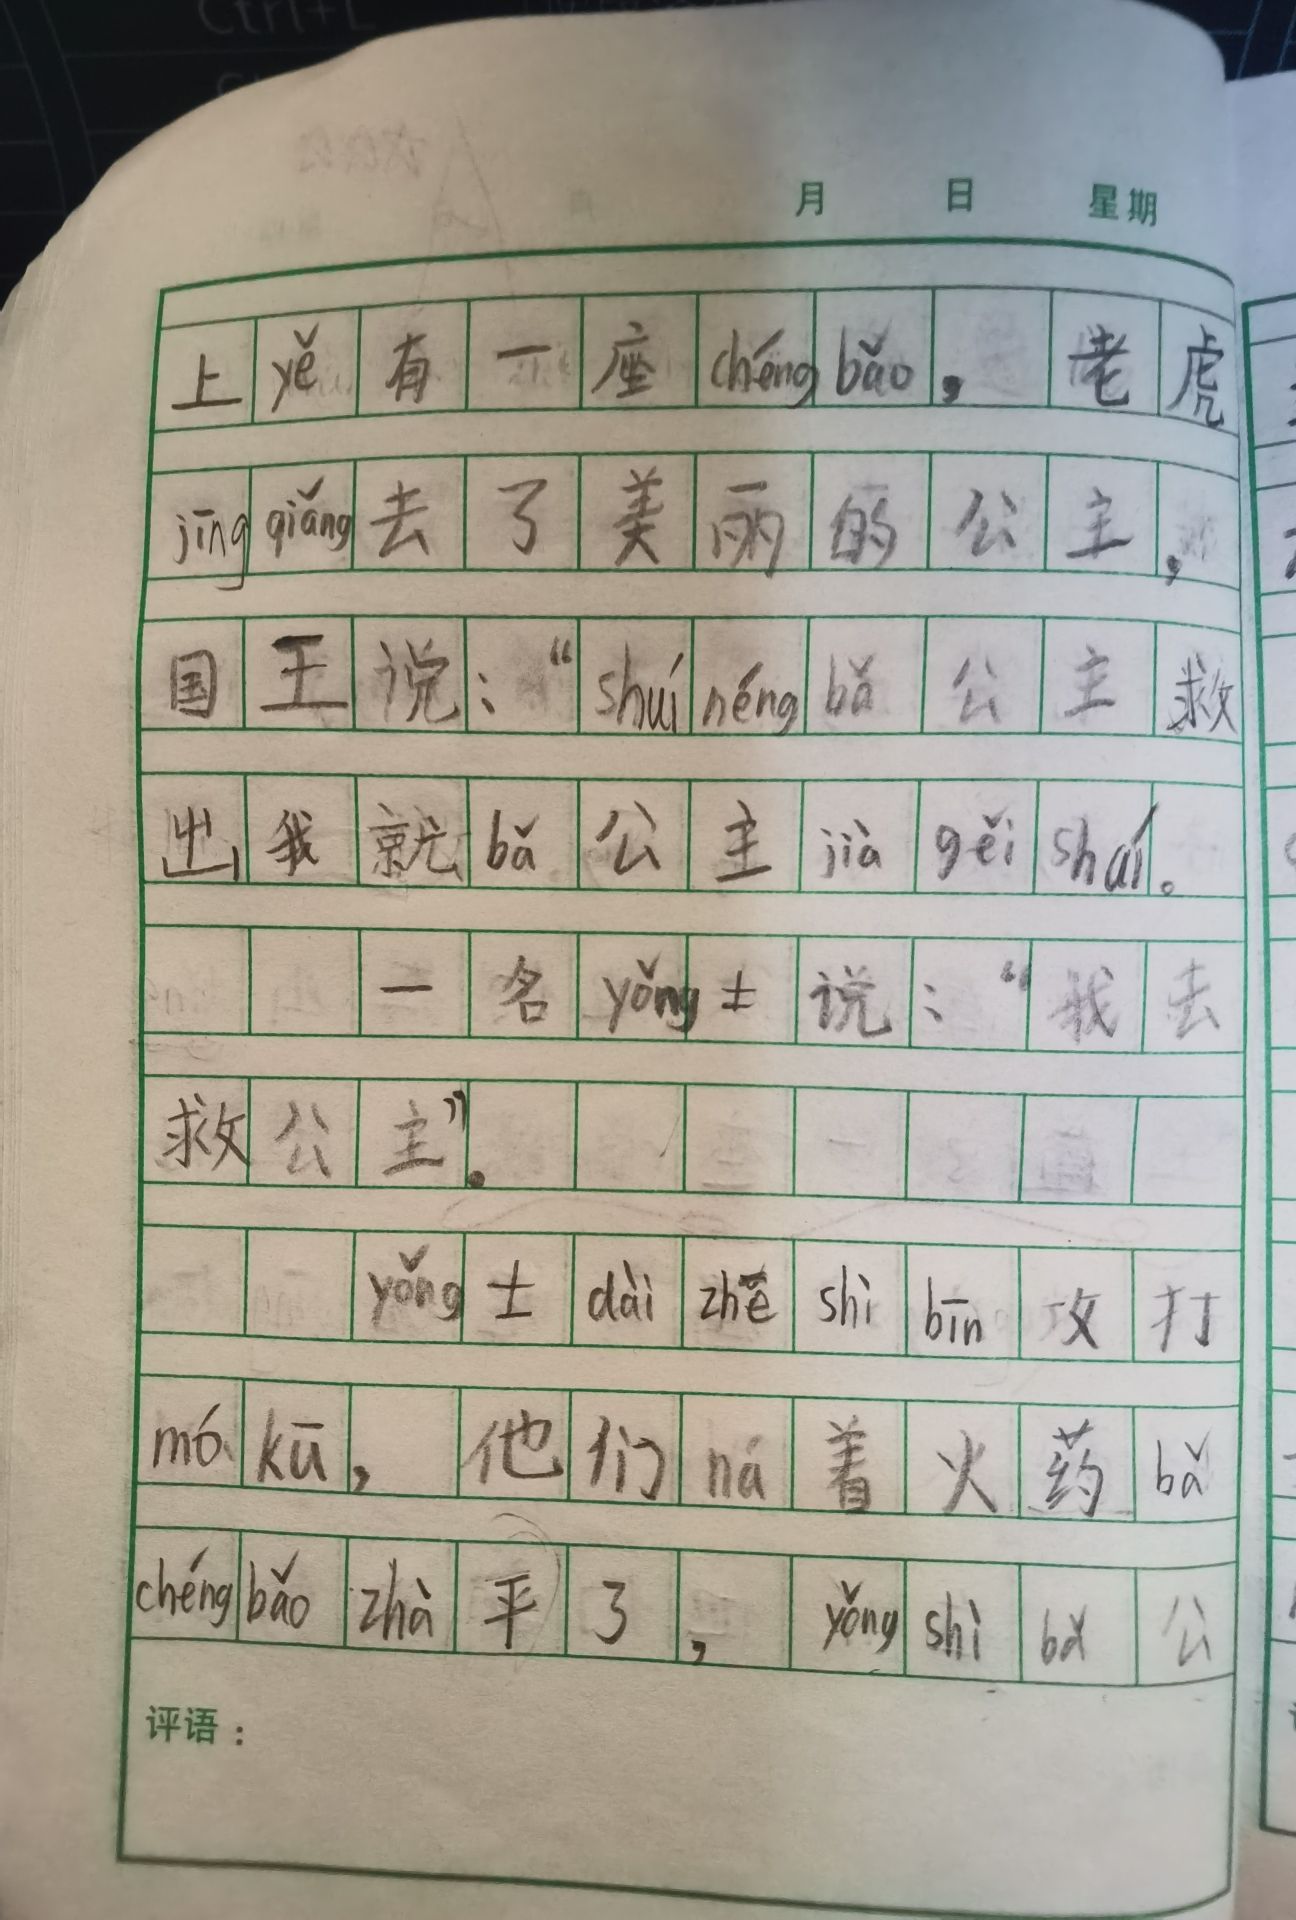 月 日 星期
上yě有一座chéngbǎo，老虎
jīngqiǎng去了美丽的公主，
国王说：“shuínéngbǎ公主救
出我就bǎ公主jiàgěishuí。
一名yǒng士说：“我去
救公主”。
yǒng士dàizhēshìbīn攻打
mókū，他们ná着火药bǎ
chéngbǎozhà平了，yǒngshìbǎ公
评语：